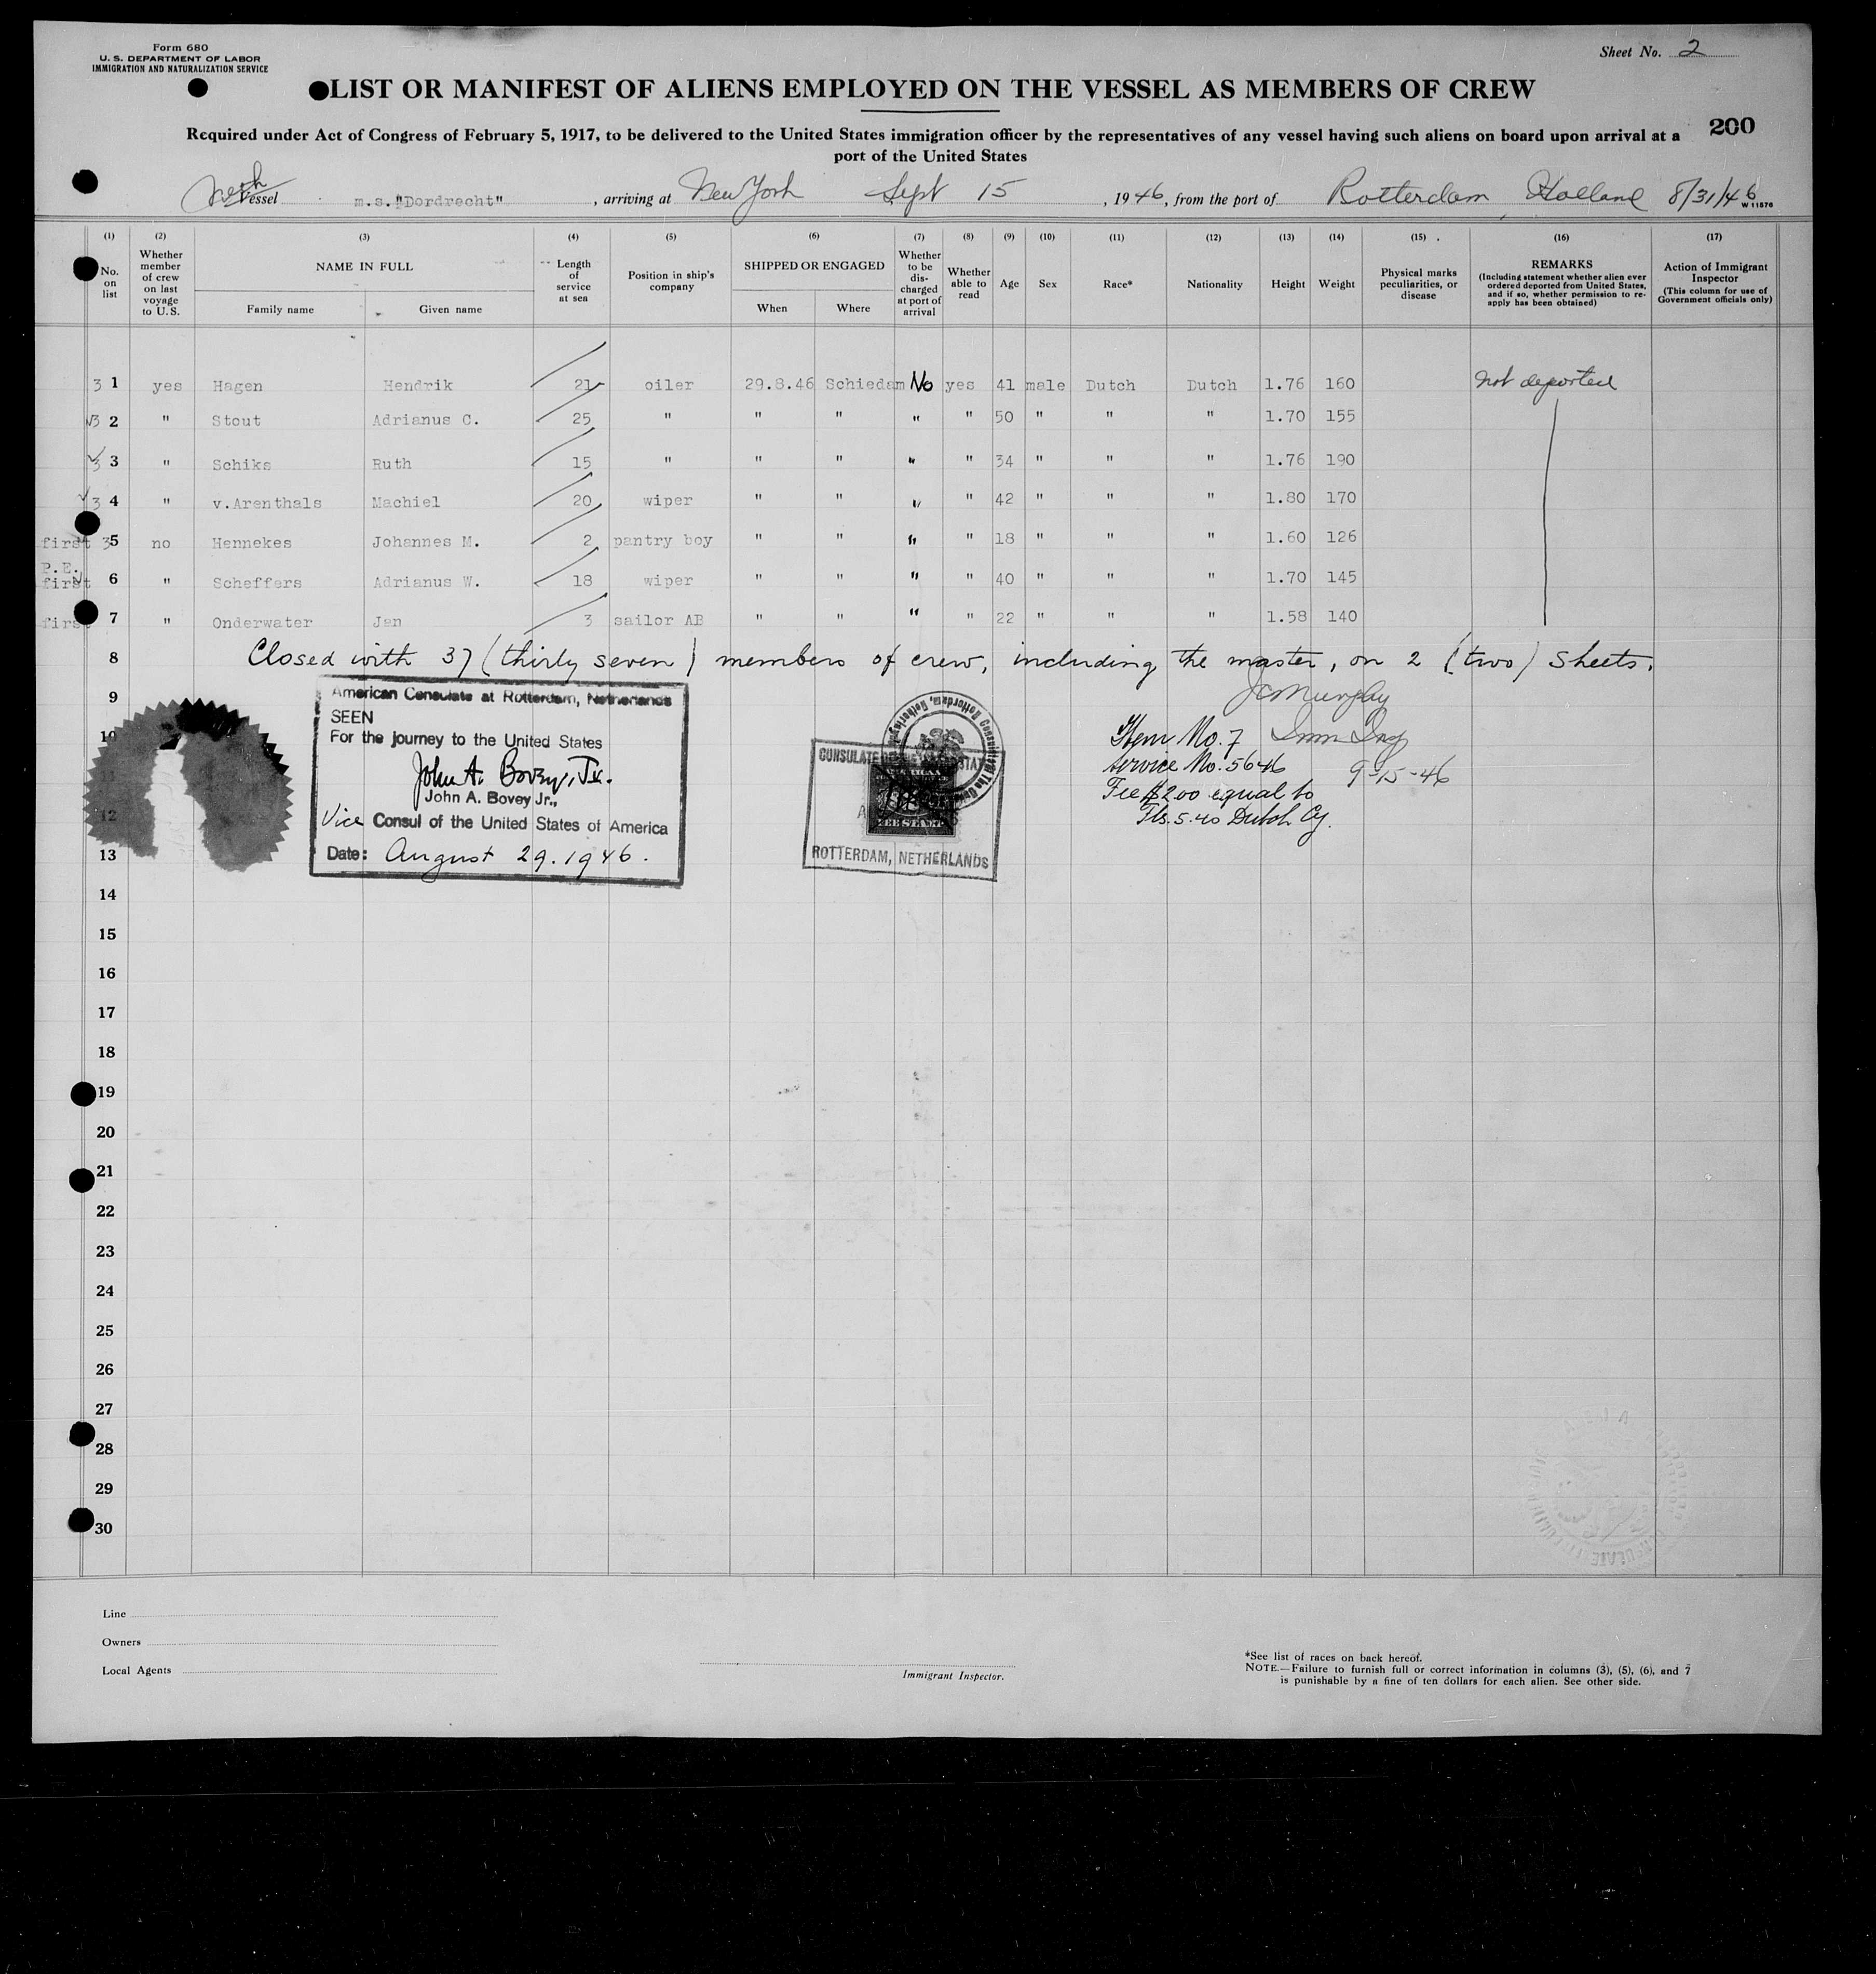 Form 680
U. S. DEPARTMENT OF LABOR
IMMIGRATION AND NATURALIZATION SERVICE
Sheet No. 2
LIST OR MANIFEST OF ALIENS EMPLOYED ON THE VESSEL AS MEMBERS OF CREW
200
Required under Act of Congress of February 5, 1917, to be delivered to the United States immigration officer by the representatives of any vessel having such aliens on board upon arrival at a
port of the United States
Vessel m.s."Dordrecht" , arriving at New York Sept 15 , 1946, from the port of Rotterdam, Holland 8/31/46
W 11876
(1) (2) (3) (4) (5) (6) (7) (8) (9) (10) (11) (12) (13) (14) (15) (16) (17)
No. on list
Whether member of crew on last voyage to U.S.
NAME IN FULL
Family name
Given name
Length of service at sea
Position in ship's company
SHIPPED OR ENGAGED
When
Where
Whether to be dis-charged at port of arrival
Whether able to read
Age
Sex
Race*
Nationality
Height
Weight
Physical marks peculiarities, or disease
REMARKS
(Including statement whether alien ever ordered deported from United States, and if so, whether permission to re-apply has been obtained)
Action of Immigrant Inspector
(This column for use of Government officials only)
3 1 yes Hagen Hendrik 21 oiler 29.8.46 Schiedam No yes 41 male Dutch Dutch 1.76 160 not deported
3 2 " Stout Adrianus C. 25 " " " " " 50 " " " 1.70 155
3 3 " Schiks Ruth 15 " " " " " 34 " " " 1.76 190
3 4 " v.Arenthals Machiel 20 wiper " " " " 42 " " " 1.80 170
first 3 5 no Hennekes Johannes M. 2 pantry boy " " " " 18 " " " 1.60 126
P.E.
first 6 " Scheffers Adrianus W. 18 wiper " " " " 40 " " " 1.70 145
first 7 " Onderwater Jan 3 sailor AB " " " " 22 " " " 1.58 140
8 Closed with 37 (thirty seven) members of crew, including the master, on 2 (two) sheets.
9
10
11
12
13
American Consulate at Rotterdam, Netherlands
SEEN
For the journey to the United States
John A. Bovey, Jr.
John A. Bovey Jr.,
Vice Consul of the United States of America
Date: August 29. 1946.
FEE STAMP
ROTTERDAM, NETHERLANDS
JC Murphy
Imm Insp
9-15-46
Item No. 7
Service No. 5646
Fee $2.00 equal to
Fls. 5.40 Dutch Cy.
14
15
16
17
18
19
20
21
22
23
24
25
26
27
28
29
30
Line
Owners
Local Agents
Immigrant Inspector.
*See list of races on back hereof.
NOTE.—Failure to furnish full or correct information in columns (3), (5), (6), and 7
is punishable by a fine of ten dollars for each alien. See other side.